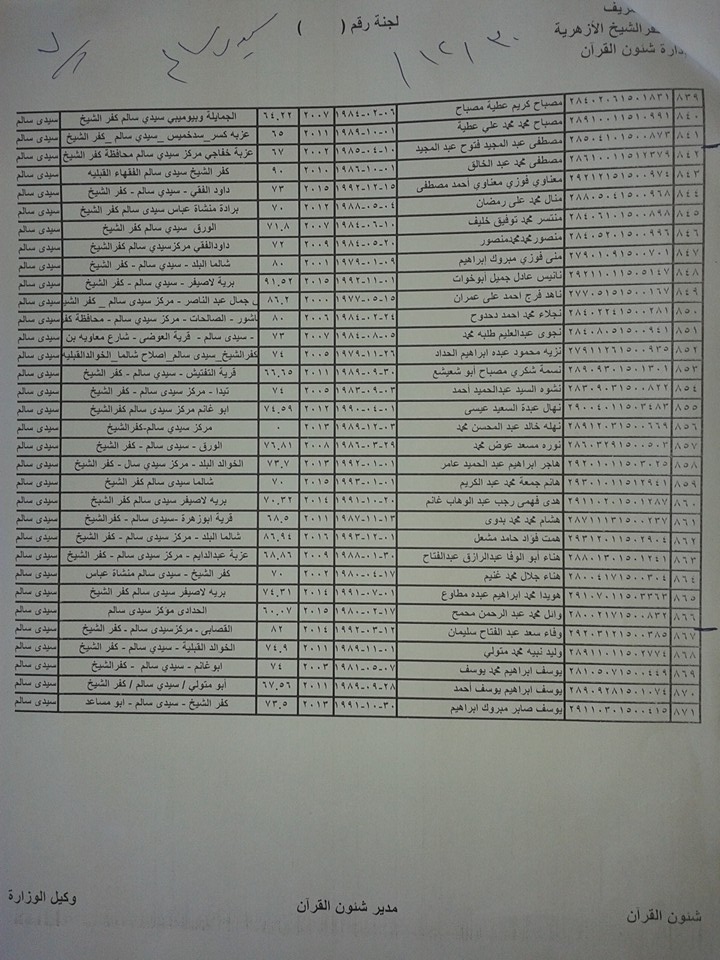 ريف
فر الشيخ الأزهرية
دارة شئون القرآن
لجنة رقم ( )
٨٣٩ ٢٨٤٠٢٠٦١٥٠١٨٣١ مصباح كريم عطية مصباح ١٩٨٤-٠٢-٠٦ ٢٠٠٧ ٦٤.٢٢ الجمايلة وبيوميبي سيدي سالم كفر الشيخ سيدى سالم
٨٤٠ ٢٨٩١٠٠١١٥١٠٩٩١ مصباح محمد محمد علي عطية ١٩٨٩-١٠-٠١ ٢٠١١ ٦٥ عزبه كسر_سدخميس_سيدي سالم _كفر الشيخ سيدى سالم
٨٤١ ٢٨٥٠٤١٠١٥٠٠٨٧٣ مصطفى عبد المجيد فتوح عبد المجيد ١٩٨٥-٠٤-١٠ ٢٠٠٢ ٦٧ عزبة خفاجي مركز سيدي سالم محافظة كفر الشيخ سيدى سالم
٨٤٢ ٢٨٦١٠٠١١٥١٢٣٧٩ مصطفى محمد عبد الخالق ١٩٨٦-١٠-٠١ ٢٠١٠ ٩٠ كفر الشيخ سيدي سالم الفقهاء القبليه سيدى سالم
٨٤٣ ٢٩٢١٢١٥١٥٠٠٩٧٤ معناوي فوزي معناوي احمد مصطفى ١٩٩٢-١٢-١٥ ٢٠١٥ ٧٣ داود الفقي - سيدي سالم - كفر الشيخ سيدى سالم
٨٤٤ ٢٨٨٠٥٠٤١٥٠٠٩٦٨ منال محمد على رمضان ١٩٨٨-٠٥-٠٤ ٢٠١٢ ٧٠ برادة منشاة عباس سيدي سالم كفر الشيخ سيدى سالم
٨٤٥ ٢٨٤٠٦١٠١٥٠٠٨٩٨ منتسر محمد توفيق خليف ١٩٨٤-٠٦-١٠ ٢٠٠٧ ٧١.٨ الورق سيدي سالم كفر الشيخ سيدى سالم
٨٤٦ ٢٨٤٠٥٢٠١٥٠٠٩٩٦ منصورمحمدمحمدمنصور ١٩٨٤-٠٥-٢٠ ٢٠٠٩ ٧٢ داودالفقي مركزسيدي سالم كفرالشيخ سيدى سالم
٨٤٧ ٢٧٩٠١٠٩١٥٠٠٧٠١ منى فوزي مبروك إبراهيم ١٩٧٩-٠١-٠٩ ٢٠٠١ ٨٠ شالما البلد - سيدي سالم - كفر الشيخ سيدى سالم
٨٤٨ ٢٩٢١١٠١١٥٠٥١٤٧ نانيس عادل جميل أبوخوات ١٩٩٢-١١-٠١ ٢٠١٥ ٩١.٥٢ برية لاصيفر - سيدي سالم - كفر الشيخ سيدى سالم
٨٤٩ ٢٧٧٠٥١٥١٥٠٠١٦٧ ناهد فرج احمد على عمران ١٩٧٧-٠٥-١٥ ٢٠٠٠ ٨٦.٢ جمال عبد الناصر - مركز سيدي سالم _ كفر الشي سيدى سالم
٨٥٠ ٢٨٤٠٢٢٤١٥٠٠٢٨١ نجلاء محمد احمد دحدوح ١٩٨٤-٠٢-٢٤ ٢٠٠٦ ٨٠ اشور - الصالحات - مركز سيدي سالم - محافظة كف سيدى سالم
٨٥١ ٢٨٤٠٨٠٥١٥٠٠٩٤١ نجوى عبدالعليم طلبه محمد ١٩٨٤-٠٨-٠٥ ٢٠٠٧ ٧٣ سيدي سالم - قرية العوضى - شارع معاويه بن سيدى سالم
٨٥٢ ٢٧٩١١٢٦١٥٠٠٩٣٥ نزيه محمود عبده ابراهيم الحداد ١٩٧٩-١١-٢٦ ٢٠٠٥ ٧٤ كفرالشيخ_سيدى سالم_إصلاح شالما_الخوالدالقبليه سيدى سالم
٨٥٣ ٢٨٩٠٩٣٠١٥٠١٣٠١ نسمة شكري مصباح أبو شعيشع ١٩٨٩-٠٩-٣٠ ٢٠١١ ٦٦.٦٥ قرية التفتيش - سيدي سالم - كفر الشيخ سيدى سالم
٨٥٤ ٢٨٣٠٩٠٣١٥٠٠٨٢٢ نشوه السيد عبدالحميد أحمد ١٩٨٣-٠٩-٠٣ ٢٠٠٥ ٧٤ تيدا - مركز سيدي سالم - كفر الشيخ سيدى سالم
٨٥٥ ٢٩٠٠٤٠١١٥٠٣٤٨٣ نهال عبدة السعيد عيسى ١٩٩٠-٠٤-٠١ ٢٠١٢ ٧٤.٥٩ ابو غانم مركز سيدي سالم كفرالشيخ سيدى سالم
٨٥٦ ٢٨٩١٢٠٣١٥٠٠٦٦٩ نهله خالد عبد المحسن محمد ١٩٨٩-١٢-٠٣ ٢٠١٣ ٠ مركز سيدي سالم-كفرالشيخ سيدى سالم
٨٥٧ ٢٨٦٠٣٢٩١٥٠٠٥٠٣ نوره مسعد عوض محمد ١٩٨٦-٠٣-٢٩ ٢٠٠٨ ٧٦.٨١ الورق - سيدي سالم - كفر الشيخ سيدى سالم
٨٥٨ ٢٩٢٠١٠١١٥٠٣٠٢٥ هاجر ابراهيم عبد الحميد عامر ١٩٩٢-٠١-٠١ ٢٠١٣ ٧٣.٧ الخوالد البلد - مركز سيدي سال - كفر الشيخ سيدى سالم
٨٥٩ ٢٩٣٠١٠١١٥١٢٩٤١ هانم جمعة محمد عبد الكريم ١٩٩٣-٠١-٠١ ٢٠١٥ ٧٠ شالما سيدي سالم كفر الشيخ سيدى سالم
٨٦٠ ٢٩١١٠٢٠١٥٠١٢٨٧ هدى فهمى رجب عبد الوهاب غانم ١٩٩١-١٠-٢٠ ٢٠١٤ ٧٠.٣٢ بريه لاصيفر سيدي سالم كفر الشيخ سيدى سالم
٨٦١ ٢٨٧١١١٣١٥٠٠٢٣٧ هشام محمد محمد بدوى ١٩٨٧-١١-١٣ ٢٠١١ ٦٨.٥ قرية ابوزهرة -سيدي سالم - كفرالشيخ سيدى سالم
٨٦٢ ٢٩٣١٢٠١١٥٠٢٩٠٤ همت فواد حامد مشعل ١٩٩٣-١٢-٠١ ٢٠١٦ ٨٦.٩٤ شالما البلد - مركز سيدي سالم - كفر الشيخ سيدى سالم
٨٦٣ ٢٨٨٠١٣٠١٥٠١٢٤١ هناء ابو الوفا عبدالرازق عبدالفتاح ١٩٨٨-٠١-٣٠ ٢٠٠٩ ٦٨.٨٦ عزبة عبدالدايم - مركز سيدي سالم - كفر الشيخ سيدى سالم
٨٦٤ ٢٨٠٠٤١٧١٥٠٠٣٠٤ هناء جلال محمد غنيم ١٩٨٠-٠٤-١٧ ٢٠٠٢ ٧٠ كفر الشيخ - سيدي سالم منشاة عباس سيدى سالم
٨٦٥ ٢٩١٠٧٠١١٥٠٣٣٦٣ هويدا محمد ابراهيم عبده مطاوع ١٩٩١-٠٧-٠١ ٢٠١٤ ٧٤.٣١ بريه لاصيفر سيدي سالم كفر الشيخ سيدى سالم
٨٦٦ ٢٨٠٠٢١٧١٥٠٠٨٣٢ وائل محمد عبد الرحمن محمح ١٩٨٠-٠٢-١٧ ٢٠١٥ ٦٠.٠٧ الحدادى مؤكز سيدي سالم سيدى سالم
٨٦٧ ٢٩٢٠٣١٢١٥٠٠٣٨٥ وفاء سعد عبد الفتاح سليمان ١٩٩٢-٠٣-١٢ ٢٠١٤ ٨٢ القصابى - مركزسيدي سالم - كفر الشيخ سيدى سالم
٨٦٨ ٢٨٩١١٠١١٥٠٢٧٧٤ وليد نبيه محمد متولي ١٩٨٩-١١-٠١ ٢٠١١ ٧٤.٩ الخوالد القبلية - سيدي سالم - كفر الشيخ سيدى سالم
٨٦٩ ٢٨١٠٥٠٧١٥٠٠٤٤٩ يوسف ابراهيم محمد يوسف ١٩٨١-٠٥-٠٧ ٢٠٠٣ ٧٤ ابوغانم - سيدي سالم - كفرالشيخ سيدى سالم
٨٧٠ ٢٨٩٠٩٢٨١٥٠١٠٧٤ يوسف ابراهيم يوسف أحمد ١٩٨٩-٠٩-٢٨ ٢٠١١ ٦٧.٥٦ أبو متولي / سيدي سالم / كفر الشيخ سيدى سالم
٨٧١ ٢٩١١٠٣٠١٥٠٠٤١٥ يوسف صابر مبروك ابراهيم ١٩٩١-١٠-٣٠ ٢٠١٣ ٧٣.٥ كفر الشيخ - سيدي سالم - ابو مساعد سيدى سالم
شئون القرآن
مدير شئون القرآن
وكيل الوزارة